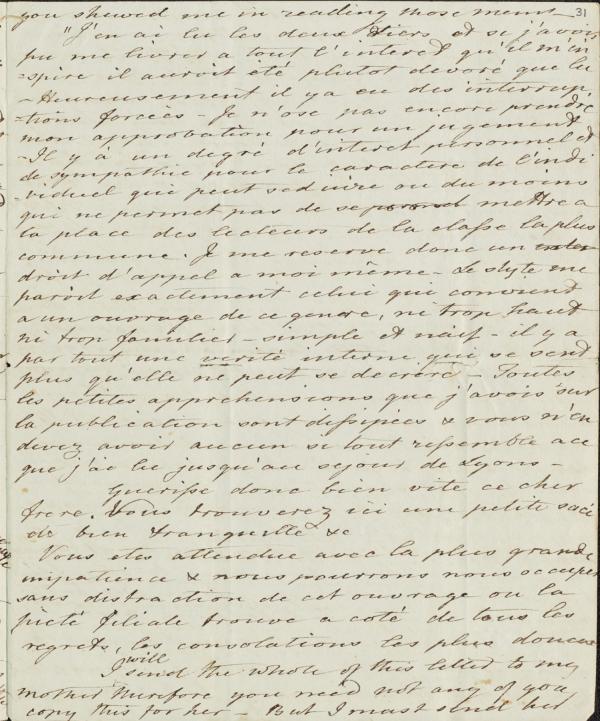 31
you shewed me in reading those mem
"J'en ai lu les deux tiers et si j'avois
pu me livrer a tout l'interet qu'il m'in
=spire il auroit été plutot devoré que lu
- Heureusement il y a eu des interrup
=tions forcées - Je n'ose pas encore prendre
mon approbation pour un jugement
- Il y à un degré d'interet personnel et
de sympathie pour le caractere de l'indi
viduel qui peut seduire ou du moins
qui ne permet pas de se mettre a
la place des lecteurs de la classe la plus
commune. Je me reserve donc un
droit d'appel a moi même - Le style me
paroit exactement celui qui convient
a un ouvrage de ce genre, ni trop haut
ni trop familier - simple et naif - il y a
par tout une verité interne qui se sent
plus qu'elle ne peut se decrere - Toutes
les petites apprehensions que j'avois sur
la publication sont dissipées & vous n'en
devez avoir aucun si tout ressemble a ce
que j'ai lu jusqu'au sejour de Lyons -
Guerisse donc bien vite ce cher
frere. Vous trouverez ici une petite socié
de bien tranquille &c
Vous etes attendue avec la plus grande
impatience & nous pourrons nous occuper
sans distraction de cet ouvrage ou la
pieté filiale trouve a coté de tous les
regrets, les consolations les plus douces
I will send the whole of this letter to my
mother therefore you need not any of you
copy this for her - But I must send her